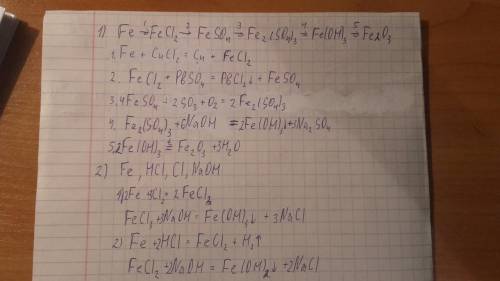 1). Fe →¹ FeCl₂ →² FeSO₄ →³ Fe₂(SO₄)₃ →⁴ Fe(OH)₃ →⁵ Fe₂O₃
1. Fe + CuCl₂ = Cu + FeCl₂
2. FeCl₂ + PbSO₄ = PbCl₂↓ + FeSO₄
3. 4FeSO₄ + 2SO₃ + O₂ = 2Fe₂(SO₄)₃
4. Fe₂(SO₄)₃ + 6NaOH = 2Fe(OH)₃↓ + 3Na₂SO₄
5. 2Fe(OH)₃ = Fe₂O₃ + 3H₂O
2) Fe, HCl, Cl₂, NaOH
1) 2Fe + 3Cl₂ = 2FeCl₃
FeCl₃ + 3NaOH = Fe(OH)₃↓ + 3NaCl
2) Fe + 2HCl = FeCl₂ + H₂↑
FeCl₂ + 2NaOH = Fe(OH)₂↓ + 2NaCl